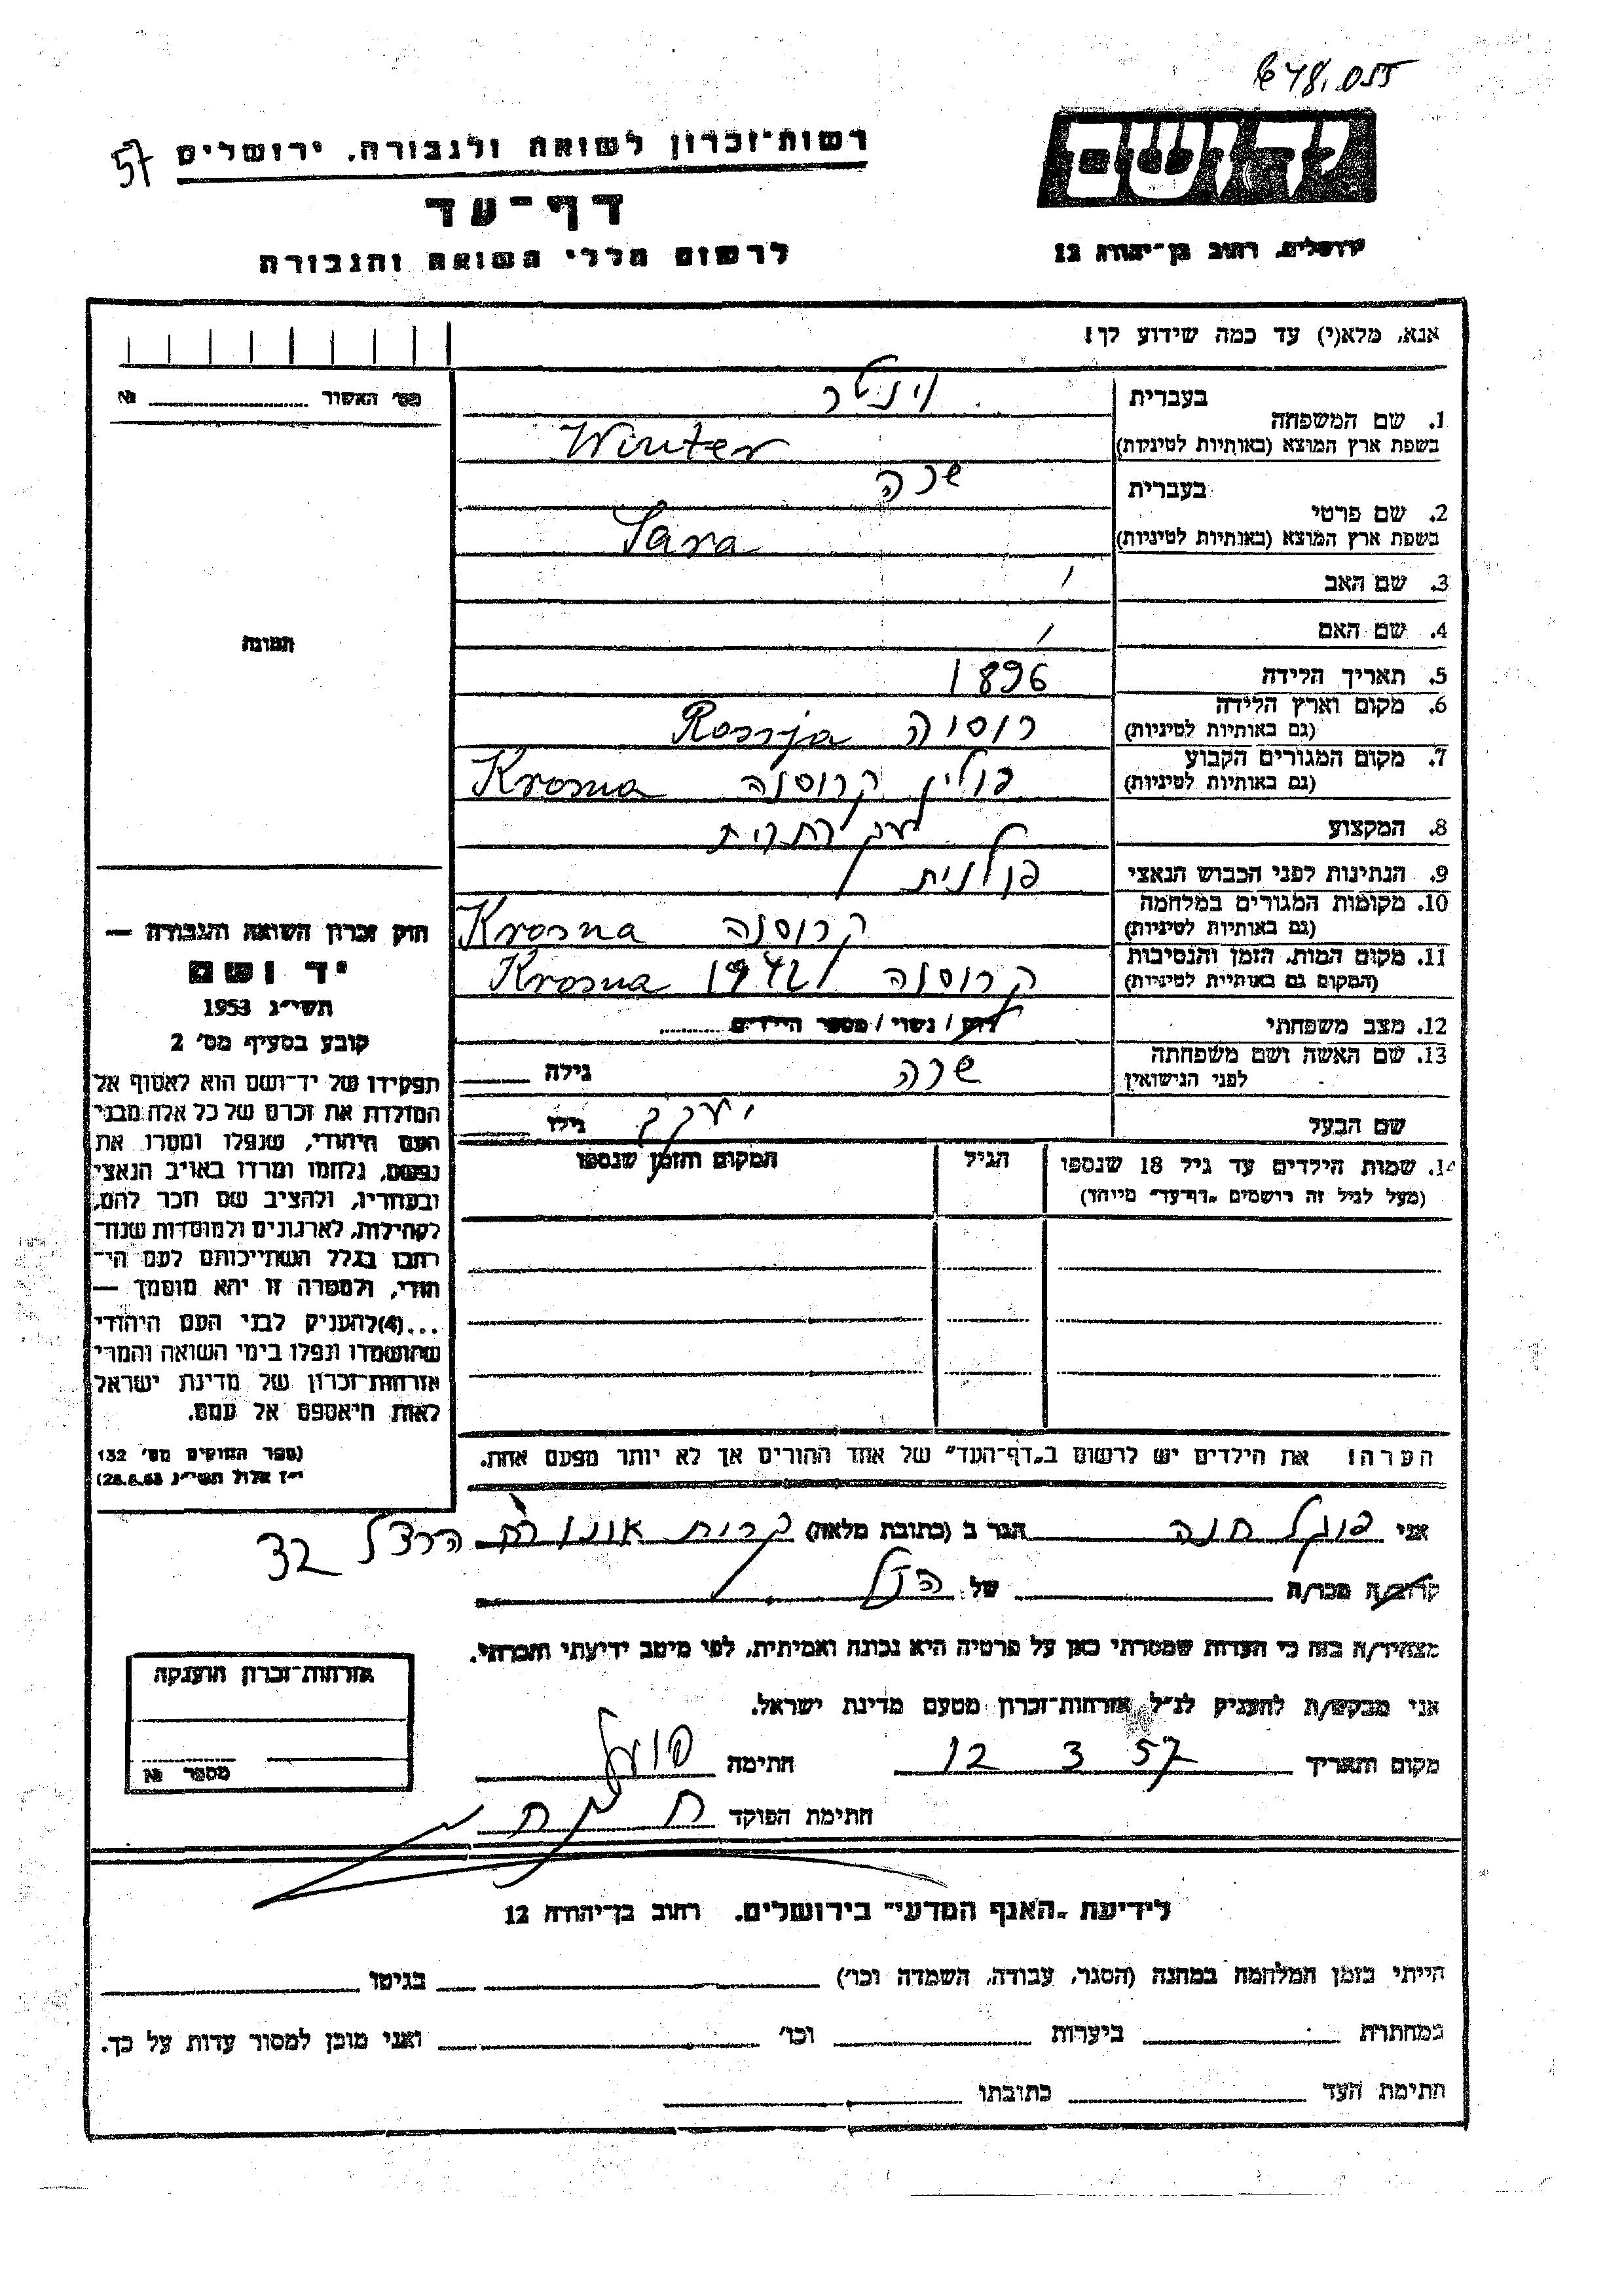 48.055
57
רשות־זכרון לשואה ולגבורה, ירושלים
דף־עד
לרשום חללי השואה והגבורה
יד ושם
ירושלים, רחוב בן־יהודה 12
אנא, מלא(י) עד כמה שידוע לך!
מס׳ האשור № 
1. שם המשפחה בעברית וינטר
בשפת ארץ המוצא (באותיות לטיניות) Winter
2. שם פרטי בעברית שרה
בשפת ארץ המוצא (באותיות לטיניות) Sara
3. שם האב
4. שם האם
5. תאריך הלידה 1896
6. מקום וארץ הלידה
(גם באותיות לטיניות) רוסיה Rossja
7. מקום המגורים הקבוע
(גם באותיות לטיניות) פולין קרוסנה Krosna
8. המקצוע עקרת בית
9. הנתינות לפני הכבוש הנאצי פולנית
10. מקומות המגורים במלחמה
(גם באותיות לטיניות) קרוסנה Krosna
11. מקום המות, הזמן והנסיבות
(המקום גם באותיות לטיניות) קרוסנה 1942 Krosna
12. מצב משפחתי רווק / נשוי / מספר הילדים
13. שם האשה ושם משפחתה
לפני הנישואין שרה גילה
שם הבעל יעקב גילו
14. שמות הילדים עד גיל 18 שנספו הגיל המקום והזמן שנספו
(מעל לגיל זה רושמים „דף־עד״ מיוחד)
הערה! את הילדים יש לרשום ב„דף־העד״ של אחד ההורים אך לא יותר מפעם אחת.
תמונה
חוק זכרון השואה והגבורה —
יד ושם
תשי״ג 1953
קובע בסעיף מס׳ 2
תפקידו של יד־ושם הוא לאסוף אל
המולדת את זכרם של כל אלה מבני
העם היהודי, שנפלו ומסרו את
נפשם, נלחמו ומרדו באויב הנאצי
ובעוזריו, ולהציב שם וזכר להם,
לקהילות, לארגונים ולמוסדות שנח־
רבו בגלל השתייכותם לעם הי־
הודי, ולמטרה זו יהא מוסמך —
...(4) להעניק לבני העם היהודי
שהושמדו ונפלו בימי השואה והמרי
אזרחות־זכרון של מדינת ישראל
לאות היאספם אל עמם.
(ספר החוקים מס׳ 132
י״ז אלול תשי״ג 28.8.53)
אני פוגל חנה הגר ב (כתובת מלאה) קרית אונו הרצל 32
קרוב/ה מכר/ה של הנ״ל
מצהיר/ה בזה כי העדות שמסרתי כאן על פרטיה היא נכונה ואמיתית, לפי מיטב ידיעתי והכרתי.
אני מבקש/ת להעניק לנ״ל אזרחות־זכרון מטעם מדינת ישראל.
מקום ותאריך 12 3 57 חתימה פוגל
חתימת הפוקד
אזרחות־זכרון הוענקה
מספר №
לידיעת „האגף המדעי״ בירושלים, רחוב בן־יהודה 12
הייתי בזמן המלחמה במחנה (הסגר, עבודה, השמדה וכו׳) בגיטו
במחתרת ביערות וכו׳ ואני מוכן למסור עדות על כך.
חתימת העד כתובתו